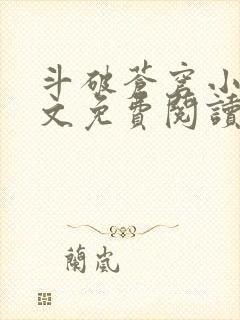 斗破蒼穹小
文免費閱讀
蘭嵐